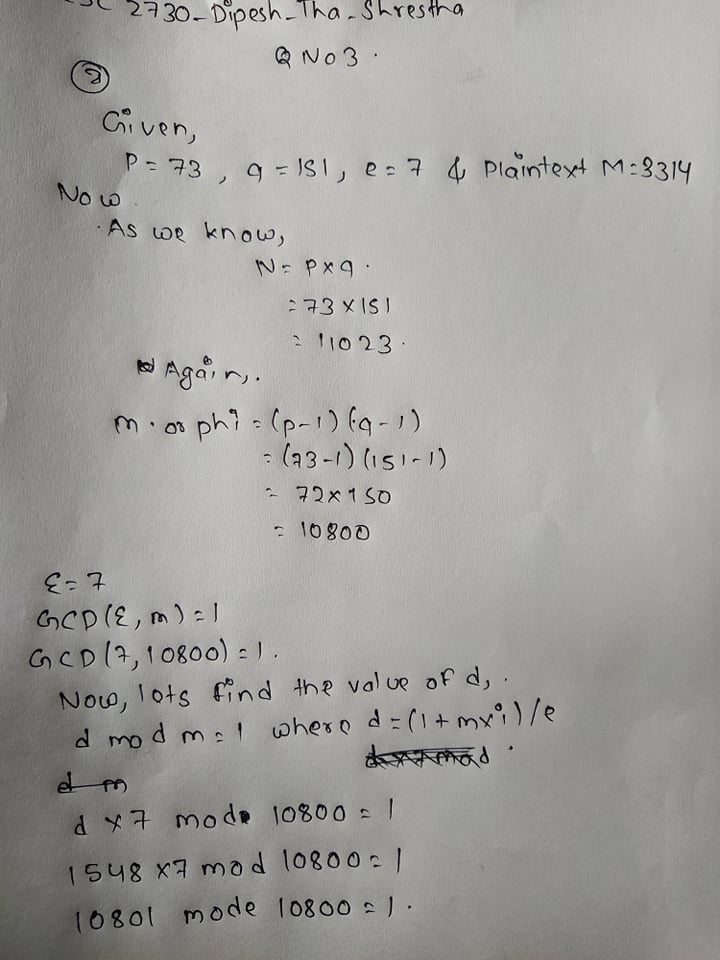 2730-Dipesh-Tha-Shrestha
Q NO 3.
3
Given,
P = 73, q = 151, e = 7 & Plaintext M = 3314
Now.
As we know,
N = P x q.
= 73 x 151
= 11023.
Again,.
m. or phi = (p-1) (q-1)
= (73-1) (151-1)
= 72 x 150
= 10800
ε = 7
GCD(ε, m) = 1
GCD(7, 10800) = 1.
Now, lots find the value of d,.
d mod m = 1 where d = (1 + m x i) / e
d x 7 mode 10800 = 1
1548 x 7 mod 10800 = 1
10801 mode 10800 = 1.